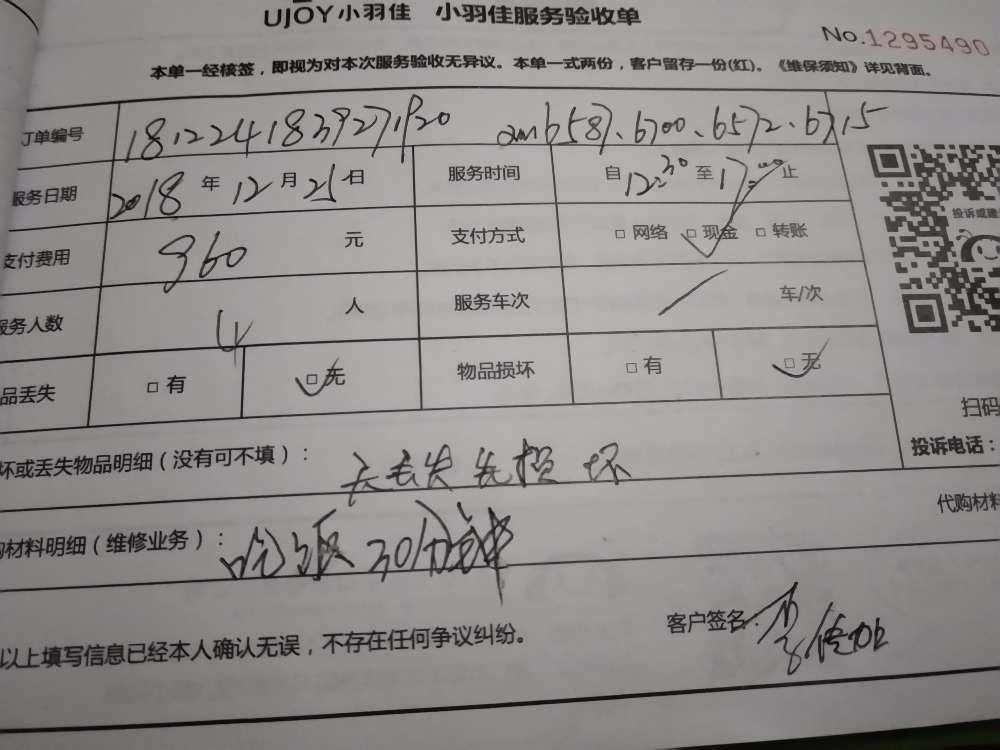 UJOY小羽佳 小羽佳服务验收单
No.1295490
本单一经核签，即视为对本次服务验收无异议。本单一式两份，客户留存一份(红)。《维保须知》详见背面。
订单编号 6587、6700、6572、6715
服务日期 2018年12月25日 服务时间 自12:30至17:00止
支付费用 960元 支付方式 □网络 □现金 □转账
服务人数 4人 服务车次 / 车/次
品丢失 □有 □无 物品损坏 □有 □无
投诉或建
扫码
投诉电话：
坏或丢失物品明细（没有可不填）： 无丢失无损坏
代购材料
购材料明细（维修业务）： 吃饭30分钟
以上填写信息已经本人确认无误，不存在任何争议纠纷。
客户签名：